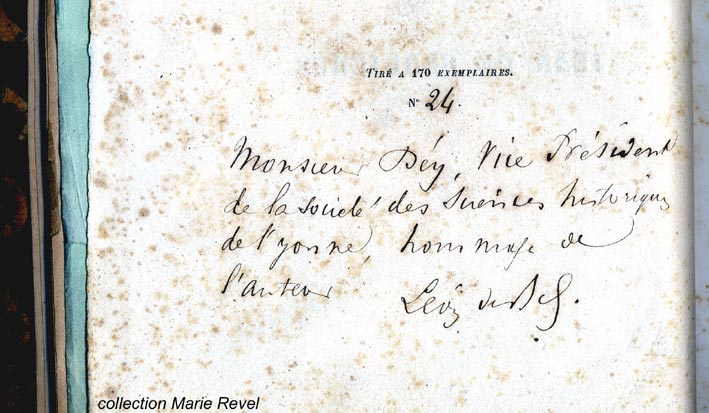 TIRÉ A 170 EXEMPLAIRES.
N° 24.
Monsieur Déy, Vice Président
de la société des sciences historiques
de l'yonne, hommage de
l'auteur Léon de
collection Marie Revel